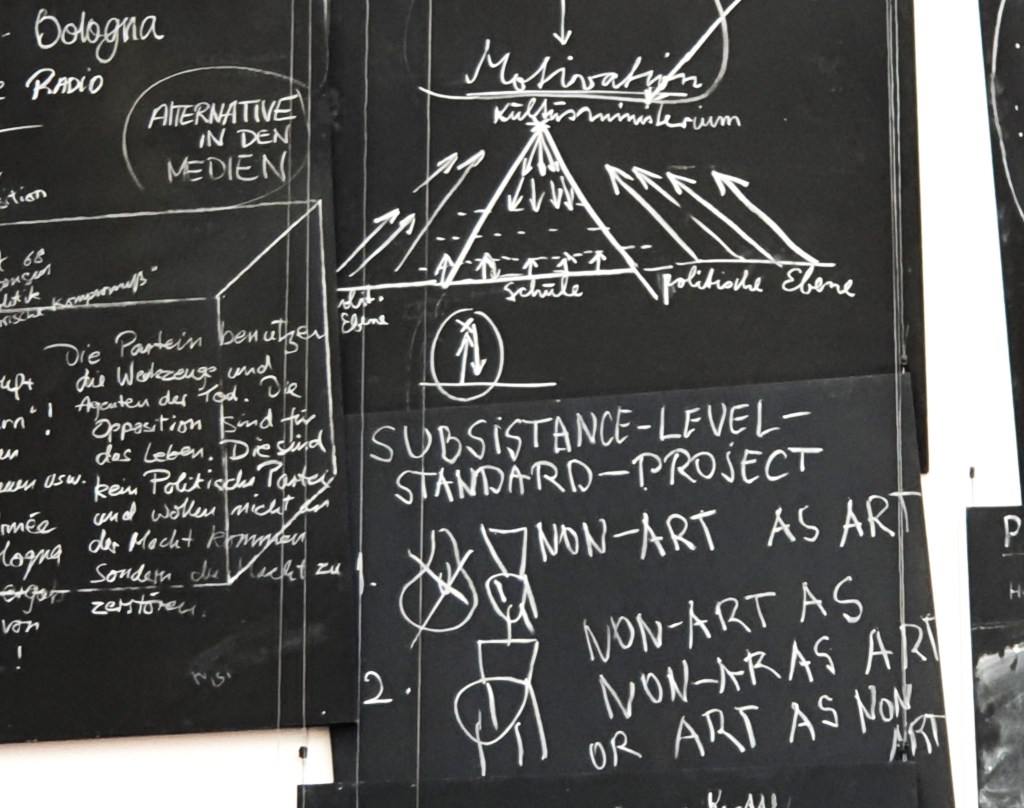 - Bologna
RADIO
ALTERNATIVE
IN DEN
MEDIEN
68
Kompromiß"
Die Partein benutzen
die Werkzeuge und
Agenten der Tod. Die
Opposition sind für
das Leben. Die sind
kein Politische Partei
und wollen nicht an
der Macht kommen
Sondern die Macht zu
zerstören.
usw.
von
!
Motivation
Kultusministerium
Ebene
Schule
politische Ebene
SUBSISTANCE-LEVEL-
STANDARD-PROJECT
1.
NON-ART AS ART
2.
NON-ART AS
NON-AR AS ART
OR ART AS NON
ART
P